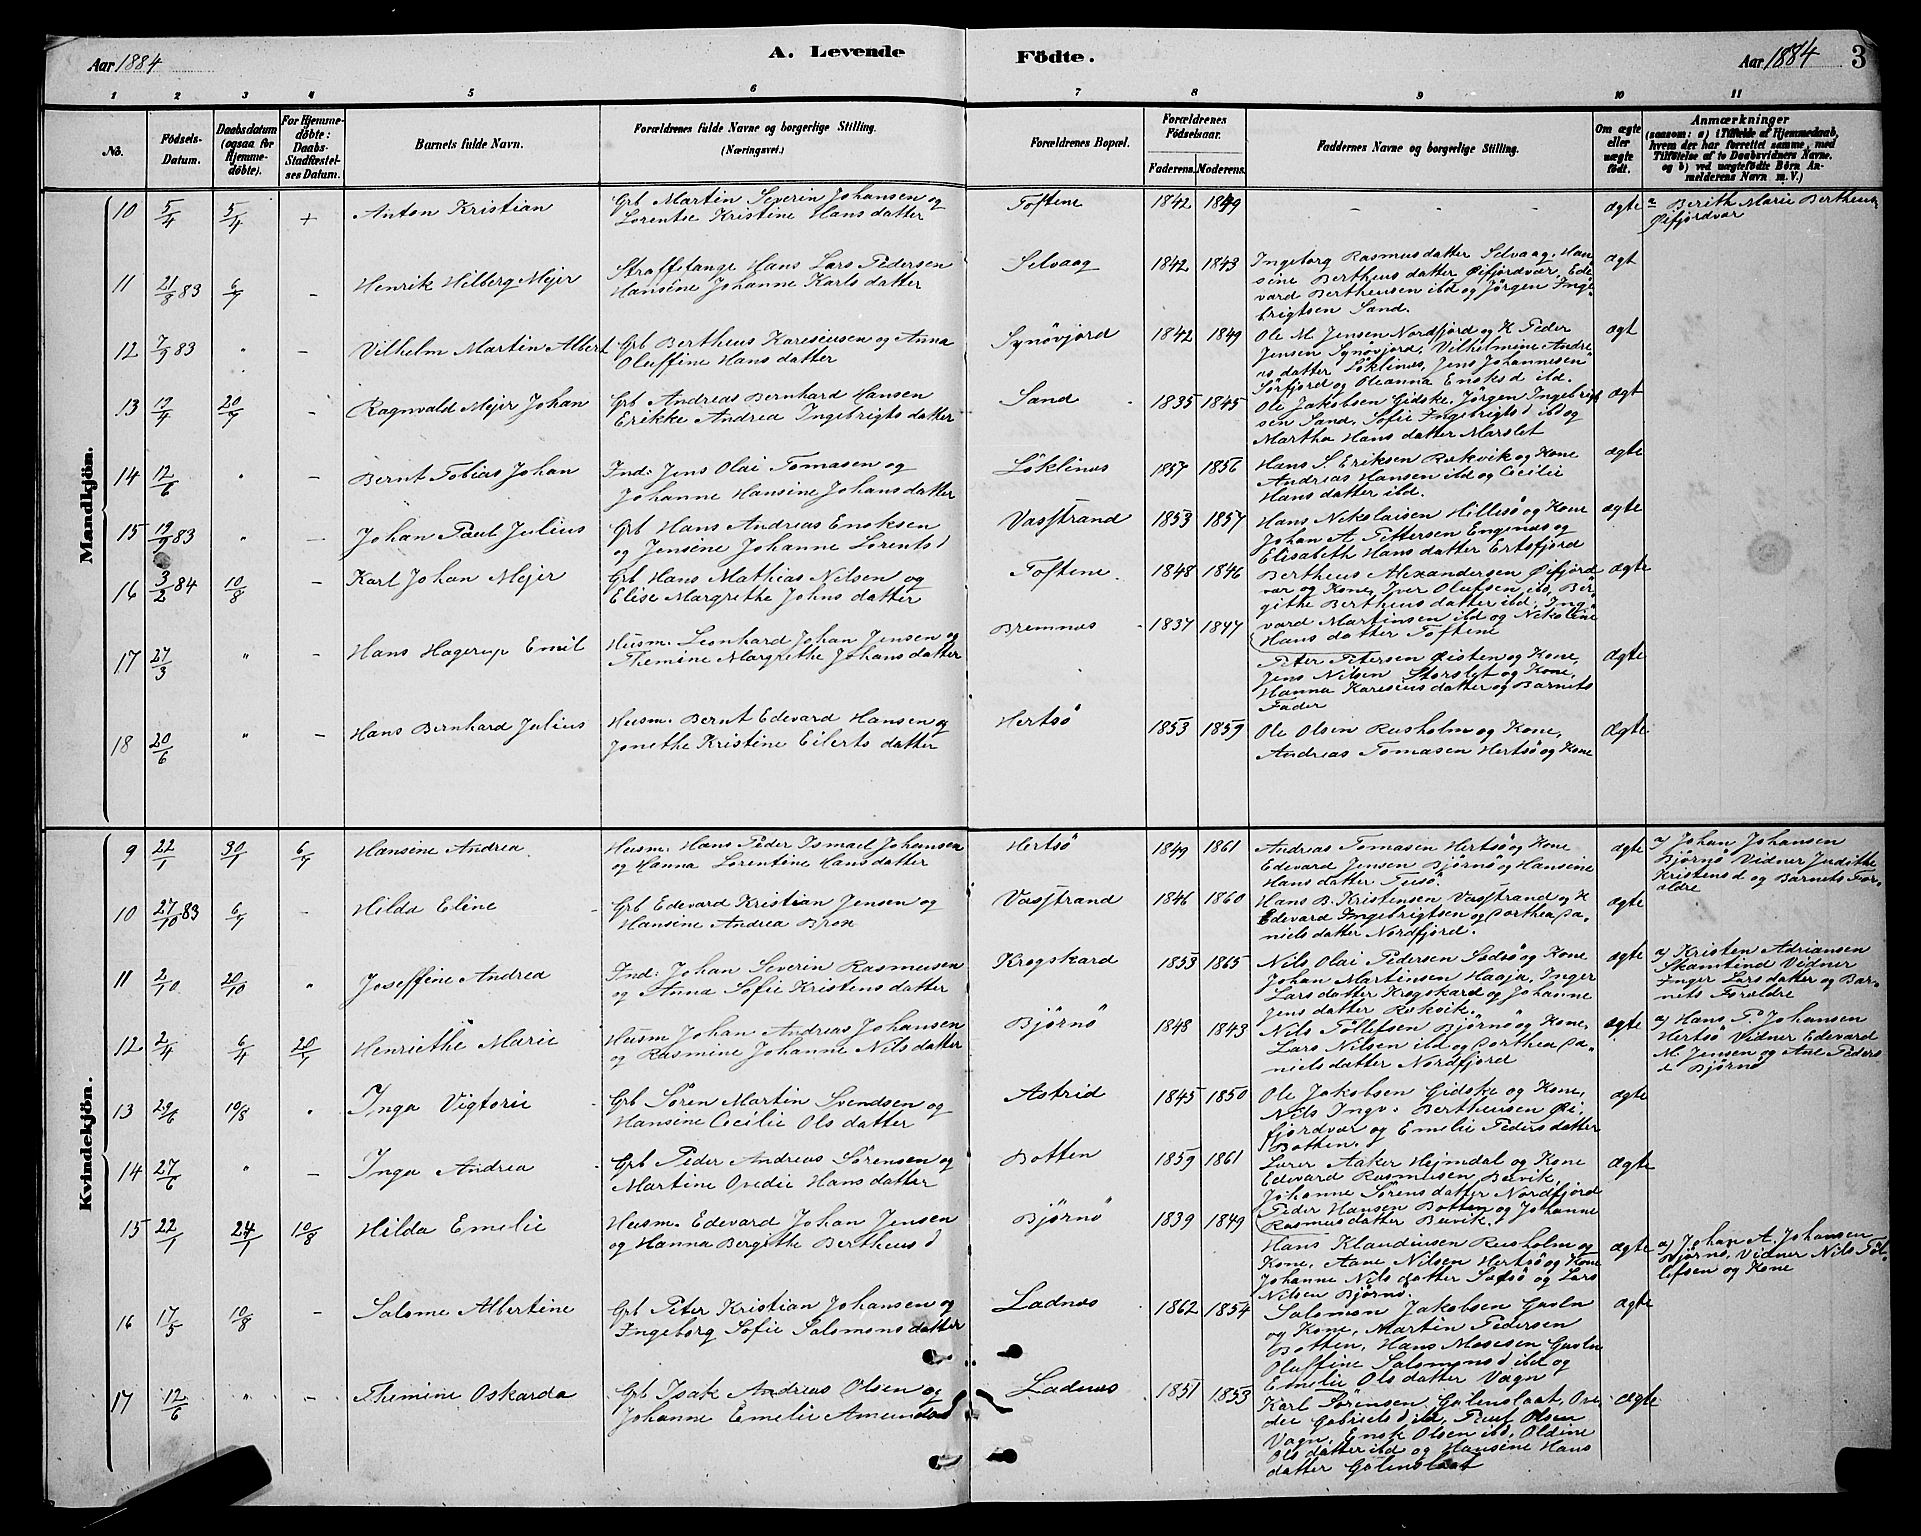 Aar 1884
A. Levende
Födte.
Aar 1884
3
1 2 3 4 5 6 7 8 9 10 11
No.
Födsels-Datum.
Daabsdatum (ogsaa for Hjemmedöbte).
For Hjemmedöbte: Daabs-Stadfæstelses Datum.
Barnets fulde Navn.
Forældrenes fulde Navne og borgerlige Stilling.
(Næringsvei.)
Forældrenes Bopæl.
Forældrenes Födselsaar.
Faderens. Moderens.
Faddernes Navne og borgerlige Stilling.
Om ægte eller uægte födt.
Anmærkninger
(saasom: a) i Tilfælde af Hjemmedaab,
hvem der har forrettet samme, med
Tilföielse af to Daabsvidners Navne,
og b) ved uægtefödte Börn An-
melderens Navn m. V.)
Mandkjön.
10 5/4 5/4 + Anton Kristian
Grb Martin Severin Johansen og
Lorentse Kristine Hansdatter
Toftene 1842 1849 - - - - ægte
a Berith Marie Bertheus
Øifjordvær
11 21/8 83 6/4 - Henrik Hilberg Mejer
Straffefange Hans Lars Pedersen
Hansine Johanne Karlsdatter
Selvaag 1842 1843
Ingeborg Rasmusdatter Selvaag, Han-
sine Bertheusdatter Øifjordvær, Ede-
vard Bertheusen ibd og Jørgen Inge-
brigtsen Sand.
ægt
12 7/9 83 " - Vilhelm Martin Albert
Grb Bertheus Kareliusen og Anna
Oluffine Hansdatter
Synøvjord 1842 1849
Ole M. Jensen Nordfjord og K Peder
Jensen Synøvjord, Vilhelmine Andre
asdatter Løklinæs, Jens Johannesen
Sørfjord og Oleanna Enoksd ibd.
ægt
13 12/4 20/4 - Ragnvald Mejer Johan
Grb Andreas Bernhard Hansen
Erikke Andrea Ingebrigtsdatter
Sand 1835 1845
Ole Jakobsen Gidske, Jørgen Ingebrigt
sen Sand, Sofie Ingebrigtsd ibd og
Martha Hansdatter Marslet
ægt
14 12/6 " - Bernt Tobias Johan
Ind: Jens Olai Tomasen og
Johanne Hansine Johansdatter
Løklinæs 1857 1856
Hans S. Eriksen Rækvik og Kone
Andreas Hansen ibd og Cecilie
Hansdatter ibd.
ægte
15 19/9 83 " - Johan Paul Julius
Grb Hans Andreas Enoksen
og Jensine Johanne Lorentsd
Vasstrand 1853 1857
Hans Nikolaisen Hillesø og Kone
Johan A. Pettersen Engenæs og
Elisabeth Hansdatter Ertsfjord
ægte
16 3/2 84 10/8 - Karl Johan Mejer
Grb Hans Mathias Nilsen og
Elise Margrethe Johnsdatter
Toftene 1848 1846
Bertheus Alexandersen Øifjord
vær og Kone, Iver Olufsen ibd, Ber-
githe Bertheusdatter ibd, Ing-
vard Martinsen ibd og Nikoline
Hansdatter Toftene
ægte
17 27/3 " - Hans Hagerup Emil
Husm. Leonhard Johan Jensen og
Themine Margrethe Johansdatter
Bremnæs 1837 1847
Peter Petersen Øisten og Kone,
Jens Nilsen Storslet og Kone,
Hanna Kareliusdatter og Barnets
Fader
ægte
18 20/6 " - Hans Bernhard Julius
Husm. Bernt Edevard Hansen og
Jonethe Kristine Eilertsdatter
Hertsø 1853 1859
Ole Olsen Rusholm og Kone,
Andreas Tomasen Hertsø og Kone
Ægte
Kvindekjön.
9 22/1 30/1 6/4 Hansine Andrea
Husm. Hans Peder Ismael Johansen
og Hanna Lorentine Hansdatter
Hertsø 1849 1861
Andreas Tomasen Hertsø og Kone
Edevard Jensen Bjørnø og Hansine
Hansdatter Tusø.
ægte
a) Johan Johansen
Bjørnø Vidner Judithe
Kristensd og Barnets For-
ældre
10 27/10 83 6/4 - Hilda Eline
Grb Edevard Kristian Jensen og
Hansine Andrea Brox
Vasstrand 1846 1860
Hans B. Kristensen Vasstrand og K
Edevard Ingebrigtsen og Dorthea Da-
nielsdatter Nordfjord.
ægte
11 2/10 20/10 " Joseffine Andrea
Ind: Johan Severin Rasmusen
og Anna Sofie Kristensdatter
Krogskard 1853 1865
Nils Olai Pedersen Sødsø og Kone
Johan Martinsen Haaja, Inger
Larsdatter Krogskard og Johanne
Jensdatter Rækvik.
ægte
a) Kristen Adriansen
Skamtind Vidner
Inger Larsdatter og Bar-
nets Forældre
12 2/4 6/4 20/4 Henriethe Marie
Husm Johan Andreas Johansen
og Rasmine Johanne Nilsdatter
Bjørnø 1848 1843
Nils Tollefsen Bjørnø og Kone,
Lars Nilsen ibd og Dorthea Da-
nielsdatter Nordfjord
ægte
a) Hans P Johansen
Hertsø Vidner Edevard
M. Jensen og Ane Peders
d Bjørnø
13 29/6 10/8 " Inga Vigtorie
Grb Søren Martin Svendsen og
Hansine Cecilie Olsdatter
Astrid 1845 1850
Ole Jakobsen Gidske og Kone,
Nils Ingv. Bertheusen Øi-
fjordvær og Emelie Pedersdatter
Botten.
ægte
14 27/6 " - Inga Andrea
Grb Peder Andreas Sørensen og
Martine Ovedie Hansdatter
Botten 1859 1861
Lærer Aaker Hejmdal og Kone
Edevard Rasmusen Buvik,
Johanne Sørensdatter Nordfjord
Peder Hansen Botten og Johanne
Rasmusdatter Buvik.
ægte
15 22/1 24/1 10/8 Hilda Emelie
Husm. Edevard Johan Jensen
og Hanna Bergithe Bertheusd
Bjørnø 1839 1849
Hans Klaudiusen Rusholm og
Kone, Aane Nilsen Hertsø og Kone
Johanne Nilsdatter Sødsø og Lars
Nilsen Bjørnø.
ægte
a) Johan A. Johansen
Bjørnø, Vidner Nils Tøl-
lefsen og Kone
16 17/5 10/8 - Salome Albertine
Grb Peter Kristian Johansen og
Ingeborg Sofie Salomonsdatter
Ladnæs 1862 1854
Salomon Jakobsen Gaaln
og Kone, Martin Pedersen
Botten, Hans Mosesen Gaaln
Oluffine Salomonsd ibd og
Emelie Olsdatter Vagn
ægte
17 12/6 " - Themine Oskarda
Grb Isak Andreas Olsen og
Johanne Emelie Amundsd
Ladnæs 1851 1853
Karl Sørensen Galenslaat, Ove-
die Gabrielsd ibd, Paul Olsen
Vagn, Enok Olsen ibd, Oldine
Olsdatter ibd og Hansine Hans
datter Galenslaat
ægte